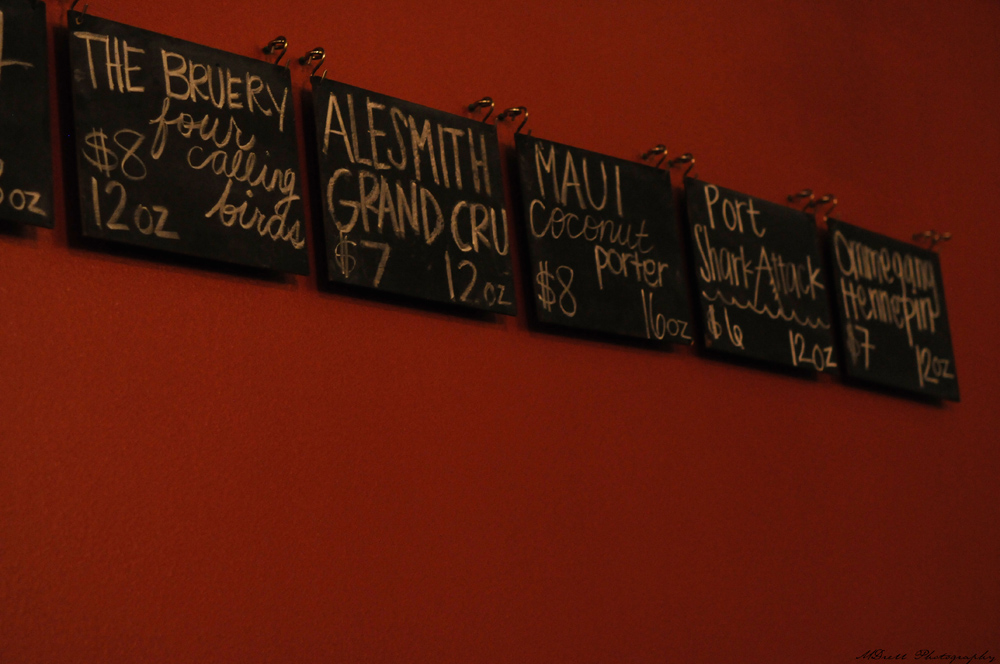 oz
THE BRUERY
four
calling
birds
$8
12 oz
ALESMITH
GRAND CRU
$7
12 oz
MAUI
coconut
porter
$8
16 oz
Port
Shark Attack
$6
12 oz
Ommegang
Hennepin
$7
12 oz
Photography